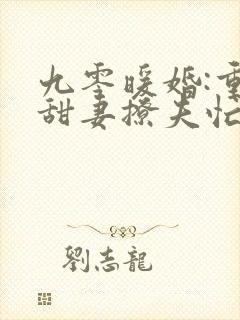 九零暖婚:重
甜妻撩夫忙
劉志龍